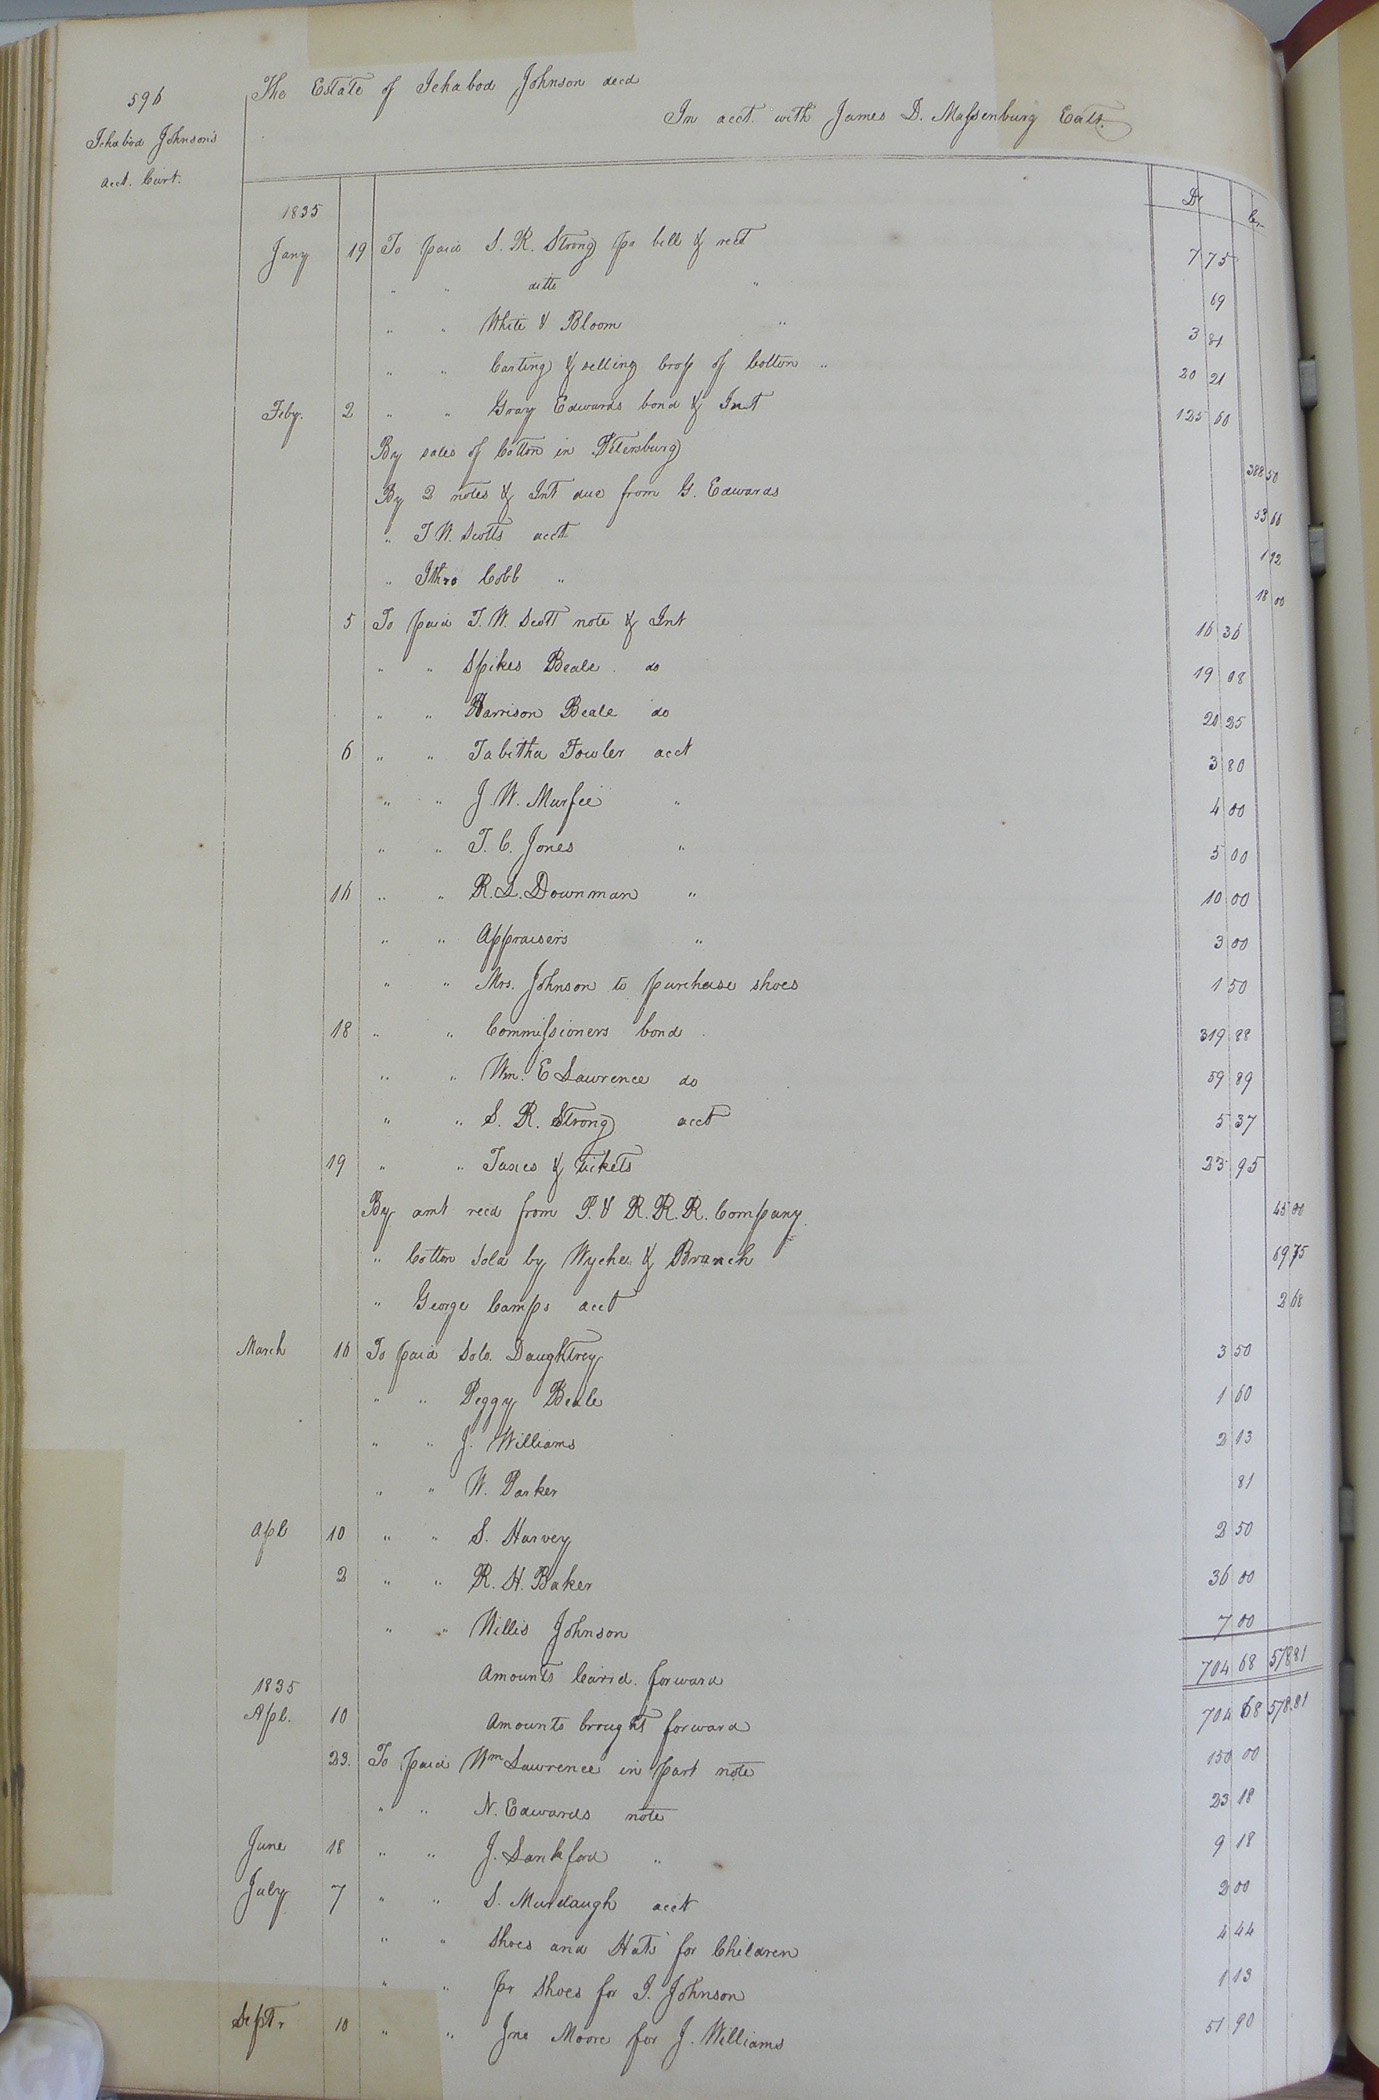 596
Ichabod Johnson's
acct. Curt.
The Estate of Ichabod Johnson decd
In acct. with James D. Massenburg Exts.
Dr Cr
1835
Jany 19 To paid S. R. Strong pr bill & rect 7 75
" " ditto " 69
" " White & Bloom " 3 81
" " Carting & selling Crop of Cotton " 20 21
Feby. 2 " " Gray Edwards bond & Int 125 60
By sales of Cotton in Petersburg 388 50
By 2 notes & Int due from G. Edwards 53 66
" T W. Scotts acct. 1 92
" Jthro Cobb " 18 00
5 To paid T. W. Scott note & Int 16 36
" " Spikes Beale do 19 08
" " Harrison Beale do 20 25
6 " " Tabitha Fowler acct 3 80
" " J. W. Murfee " 4 00
" " T. C. Jones " 5 00
16 " " R. S. Downman " 10 00
" " Appraisers " 3 00
" " Mrs. Johnson to purchase shoes 1 50
18 " " Commissioners bond 319 88
" " Wm. E Lawrence do 59 89
" " S. R. Strong acct 5 37
19 " " Taxes & tickets 23 95
By amt recd from P. & R. R. R. Company 45 00
" Cotton sold by Wyche & Branch 69 75
" George Camps acct 2 68
March 16 To paid Solo. Daughtrey 3 50
" " Peggy Beale 1 60
" " J. Williams 2 13
" " W. Parker 81
Apl 10 " " S. Harvey 2 50
2 " " R. H. Baker 36 00
" " Willis Johnson 7 00
Amounts Carrd. forward 704 68 578 81
1835
Apl. 10 Amounts brought forward 704 68 578.81
23. To paid Wm Lawrence in part note 150 00
" " N. Edwards note 23 18
June 18 " " J. Lankford " 9 18
July 7 " " S. Murdaugh acct 2 00
" " Shoes and Hats for Children 4 44
" " pr Shoes for I. Johnson 1 13
Septr 10 " " Jno Moore for J. Williams 51 90